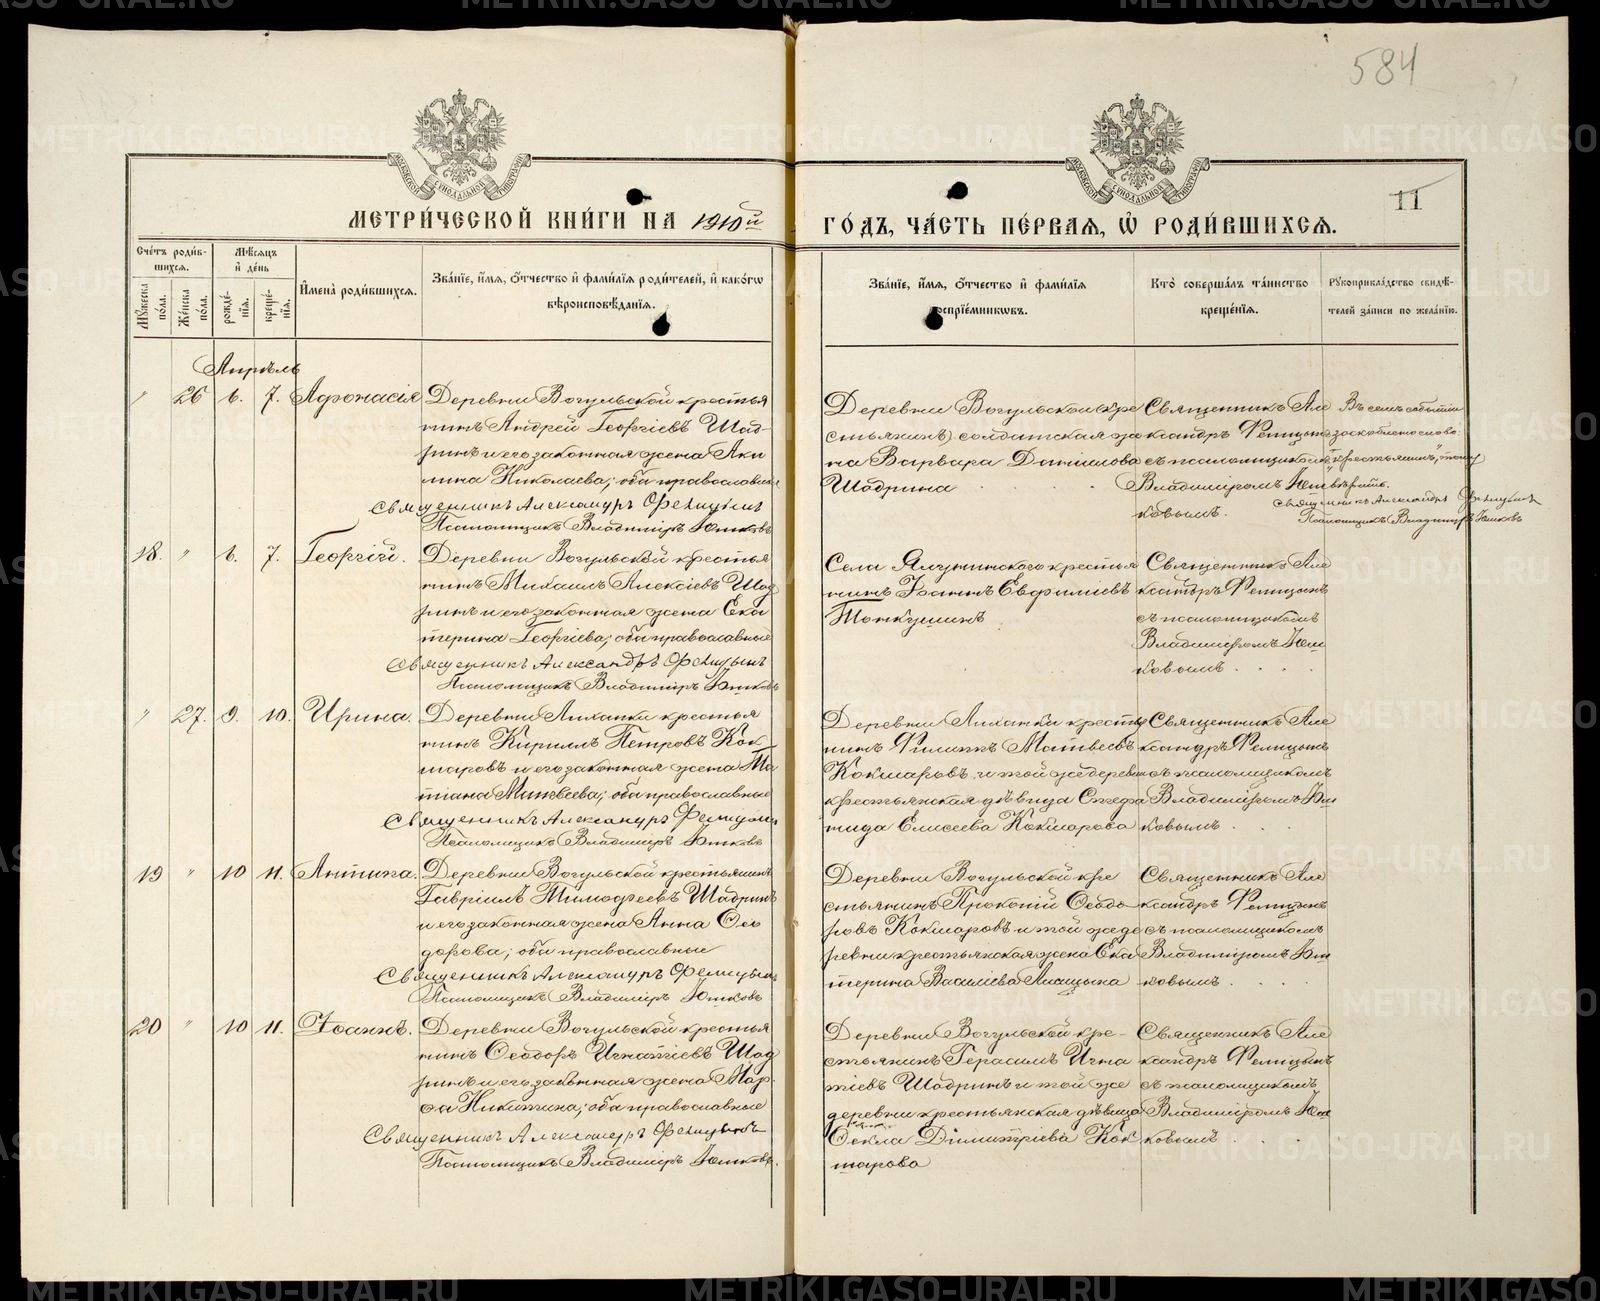 584
11
МОСКОВСКОЙ СѴНОДАЛЬНОЙ ТИПОГРАФІИ
МОСКОВСКОЙ СѴНОДАЛЬНОЙ ТИПОГРАФІИ
МЕТРИ́ЧЕСКОЙ КНИ́ГИ НА 1910й
ГО́ДЪ, ЧА́СТЬ ПЕ́РВАЯ, Ѡ РОДИ́ВШИХСЯ.
Сче́тъ роди́в-
шихся.
Му́жеска по́ла.
Же́нска по́ла.
Мѣ́сяцъ
и де́нь
рожде́-
нїя.
креще́-
нїя.
Имена̀ роди́вшихся.
Зва́нїе, и́мя, о́тчество и фами́лїя роди́телей, и како́гѡ
вѣроисповѣ́данїя.
Зва́нїе, и́мя, о́тчество и фами́лїя
воспрїе́мникѡвъ.
Кто̀ соверша́лъ та́инство
креще́нїя.
Рꙋкоприкла́дство свидѣ́-
телей за́писи по жела́нїю.
Апрѣль
" 26 6. 7. Афонасія
Деревни Вогульской крестья
нинъ Андрей Георгіевъ Шад-
ринъ и его законная жена Аки
лина Николаева; оба православные
Священникъ Александръ Фелицынъ
Псаломщикъ Владиміръ Юшковъ
Деревни Вогульской кре
стьянинъ солдатская же
на Варвара Даниилова
Шадрина
Священникъ Але
ксандръ Фелицынъ
съ псаломщикомъ
Владиміромъ Юш
ковымъ.
Въ семъ событіи
заскоблено слово:
"крестьянинъ", тому
вѣрить.
Священникъ Александръ Фелицынъ
Псаломщикъ Владиміръ Юшковъ
18. " 6. 7. Георгій.
Деревни Вогульской крестья
нинъ Михаилъ Алексіевъ Шад
ринъ и его законная жена Ека
терина Георгіева; оба православные
Священникъ Александръ Фелицынъ
Псаломщикъ Владиміръ Юшковъ
Села Ялунинскаго крестья
нинъ Іоаннъ Евфиміевъ
Топкушинъ
Священникъ Але
ксандръ Фелицынъ
съ псаломщикомъ
Владиміромъ Юш
ковымъ
" 27. 9. 10. Ирина.
Деревни Лиханки крестья
нинъ Кириллъ Петровъ Кок
шаровъ и его законная жена Та
тіана Матвѣева; оба православные
Священникъ Александръ Фелицынъ
Псаломщикъ Владиміръ Юшковъ
Деревни Лиханки крестья
нинъ Филиппъ Матвеевъ
Кокшаровъ и той же деревни
крестьянская дѣвица Стефа
нида Елисеева Кокшарова
Священникъ Але
ксандръ Фелицынъ
съ псаломщикомъ
Владиміромъ Юш
ковымъ
19 " 10 11. Антипа.
Деревни Вогульской крестьянинъ
Гавріилъ Тимофеевъ Шадринъ
и его законная жена Анна Ѳео
дорова; оба православные
Священникъ Александръ Фелицынъ
Псаломщикъ Владиміръ Юшковъ
Деревни Вогульской кре
стьянинъ Прокопій Ѳеодо-
ровъ Кокшаровъ и той же де
ревни крестьянская жена Ека
терина Василіева
Священникъ Але
ксандръ Фелицынъ
съ псаломщикомъ
Владиміромъ Юш
ковымъ
20 " 10 11. Іоаннъ.
Деревни Вогульской крестья
нинъ Ѳеодоръ Игнатіевъ Шад
ринъ и его законная жена Мар-
ѳа Никитина; оба православные
Священникъ Александръ Фелицынъ
Псаломщикъ Владиміръ Юшковъ.
Деревни Вогульской кре-
стьянинъ Герасимъ Игна
тіевъ Шадринъ и той же
деревни крестьянская дѣвица
Ѳекла Димитріева Кок
шарова
Священникъ Але
ксандръ Фелицынъ
съ псаломщикомъ
Владиміромъ Юш
ковымъ
METRIKI.GASO-URAL.RU